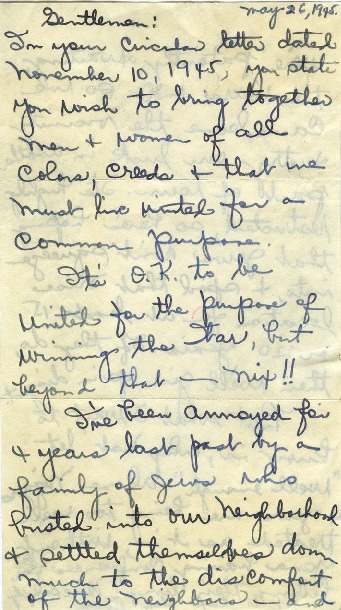 May 26, 1945.
Gentlemen:
In your Circular letter dated
November 10, 1945, you state
you wish to bring together
men & women of all
Colors, Creeds & that we
must live united for a
Common purpose.
It's O.K. to be
United for the purpose of
winning the War, but
beyond that — nix!!
I've been annoyed for
4 years last past by a
family of Jews who
busted into our Neighborhood
& settled themselves down
much to the discomfort
of the neighbors — and